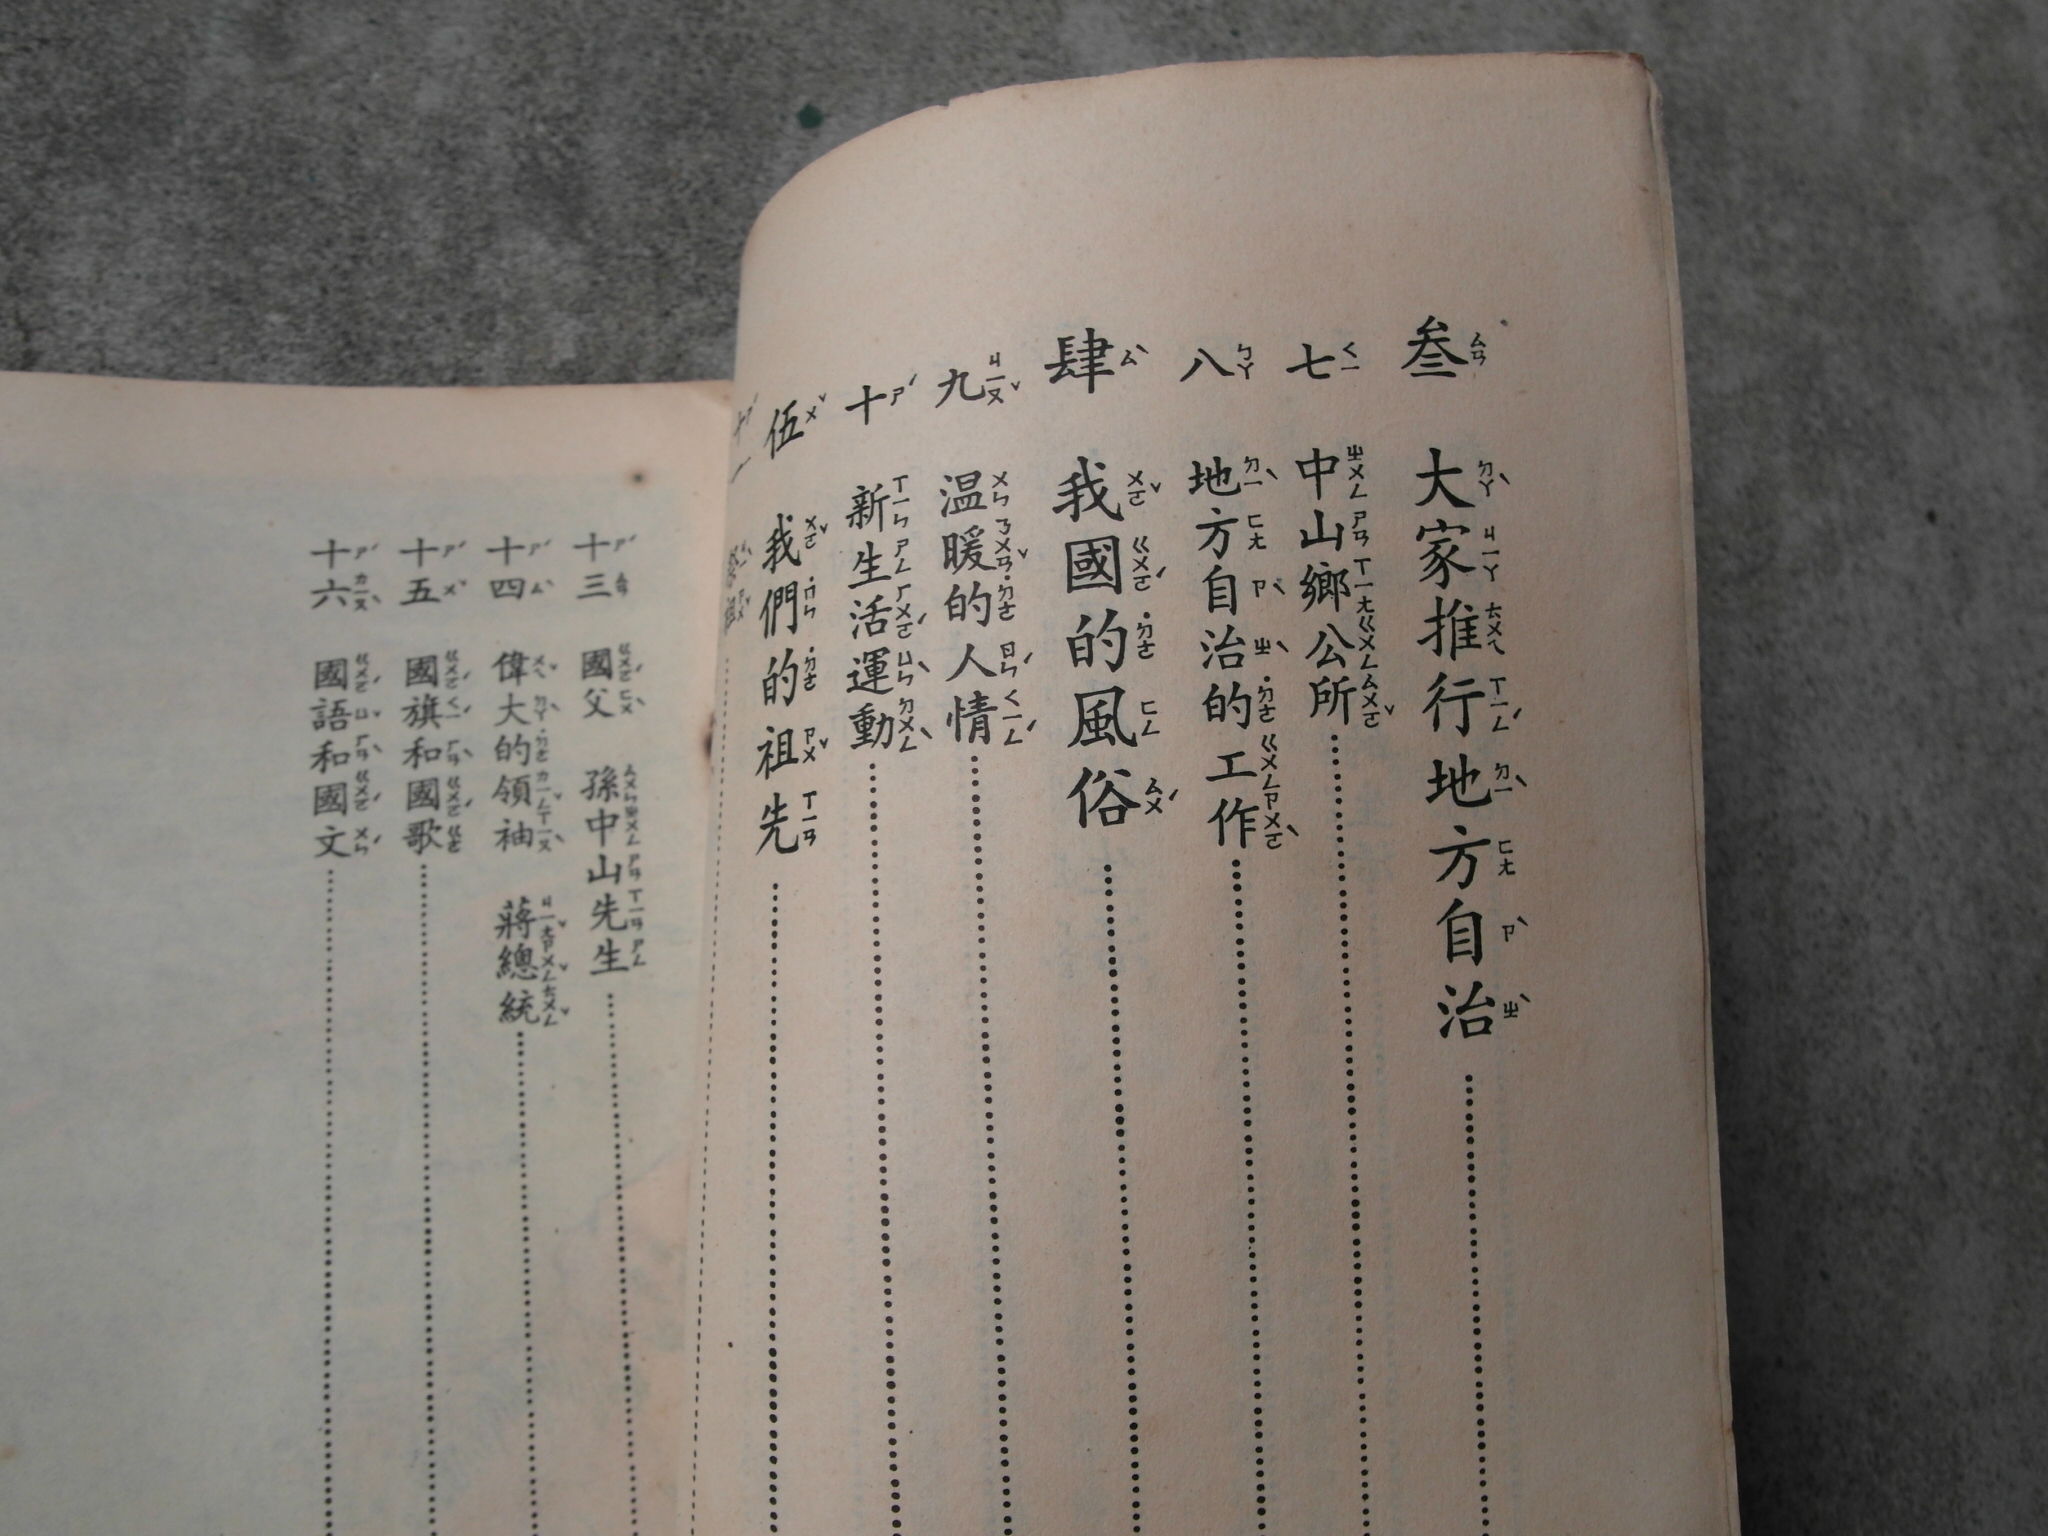 叁 大家推行地方自治
七 中山鄉公所
八 地方自治的工作
肆 我國的風俗
九 溫暖的人情
十 新生活運動
伍 我們的祖先
十三 國父 孫中山先生
十四 偉大的領袖 蔣總統
十五 國旗和國歌
十六 國語和國文